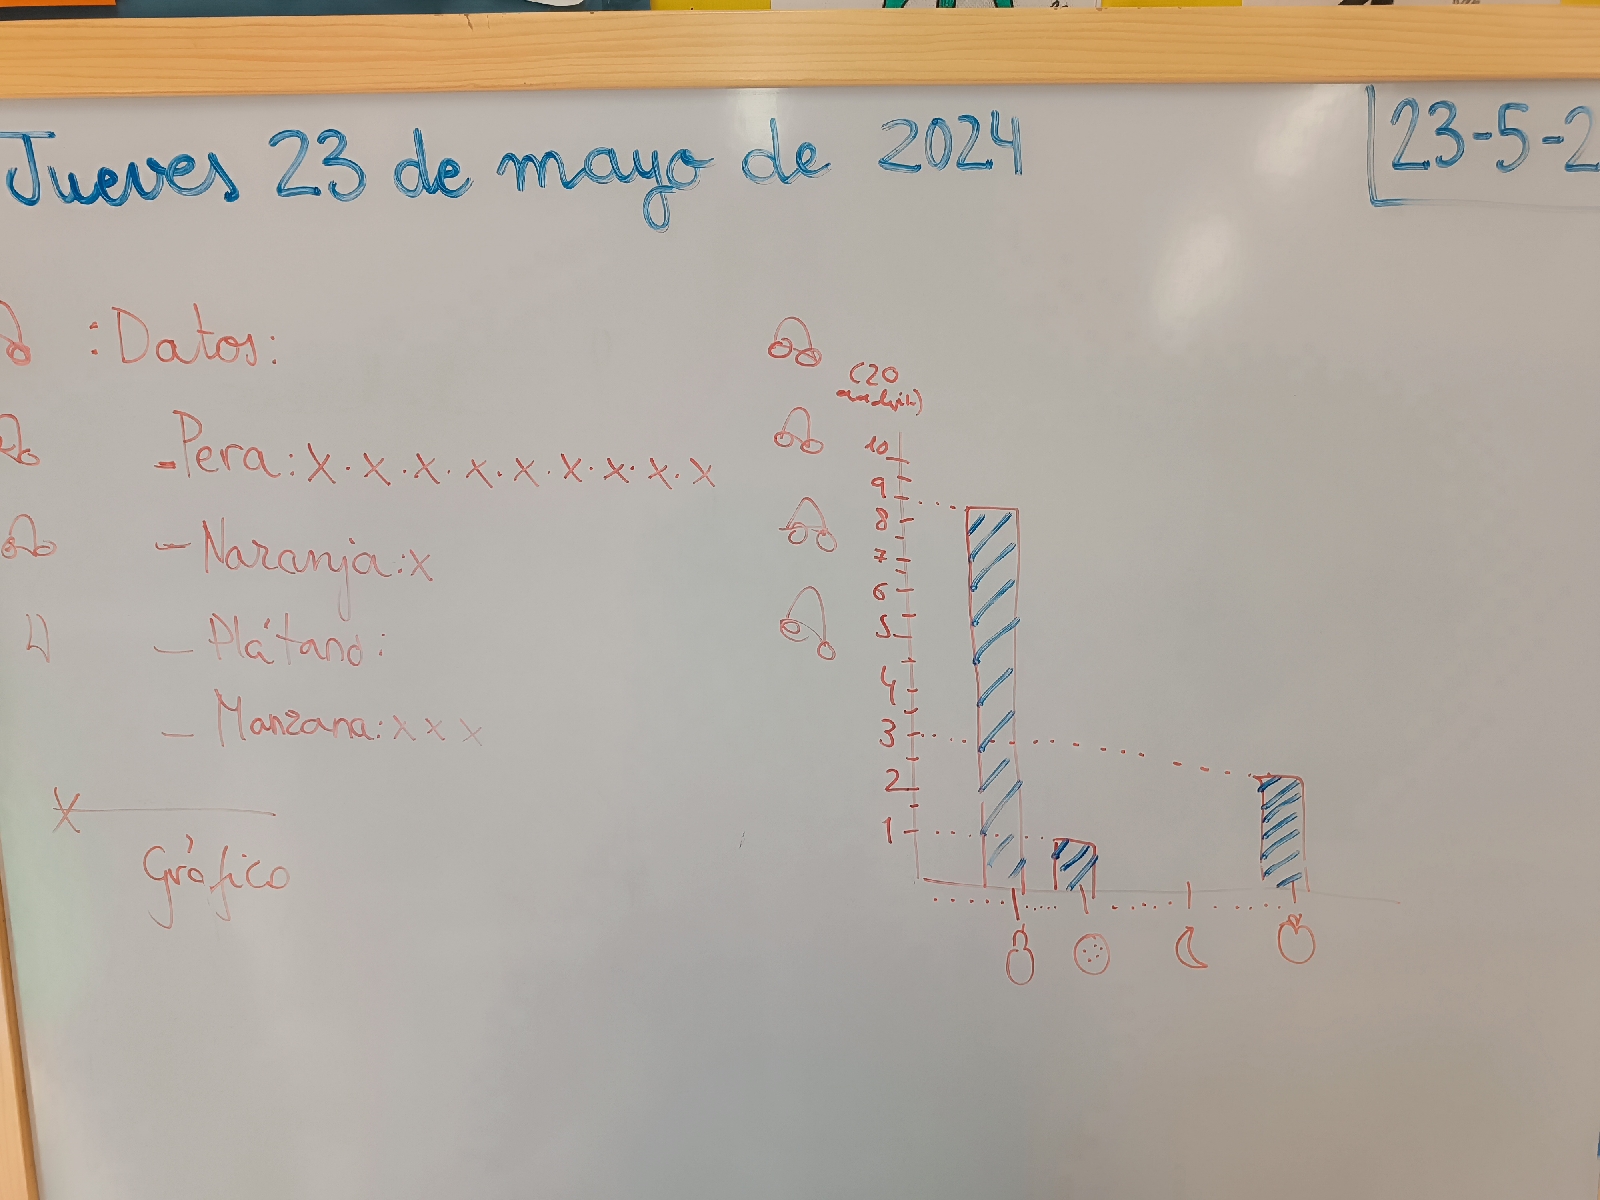 Jueves 23 de mayo de 2024
23-5-2
:Datos:
- Pera: x · x · x · x · x · x · x · x · x
- Naranja: x
- Plátano:
- Manzana: x x x
x
Gráfico
(20
10
9
8
7
6
5
4
3
2
1